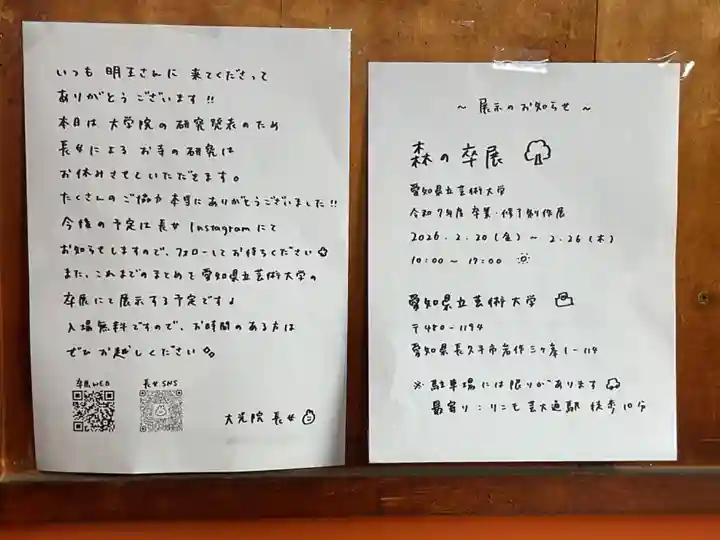 いつも 明王さんに 来てくださって
ありがとう ございます!!
本日は 大学院の 研究発表のため
長女による お寺の研究は
お休みさせていただきます。
たくさんの ご協力 本当にありがとうございました!!
今後の予定は 長女 Instagramにて
お知らせしますので、フォローしてお待ちください
また、これまでのまとめを 愛知県立芸術大学の
卒展にて展示する予定です♩
入場無料ですので、お時間のある方は
ぜひ お越しください
卒展WEB 長女SNS
大光院 長女
~ 展示のお知らせ ~
森の卒展
愛知県立芸術大学
令和7年度 卒業・修了制作展
2026.2.20(金) ~ 2.26(木)
10:00~17:00
愛知県立芸術大学
〒480-1194
愛知県長久手市岩作三ケ峯1-114
※ 駐車場には限りがあります
最寄り:リニモ 芸大通駅 徒歩10分